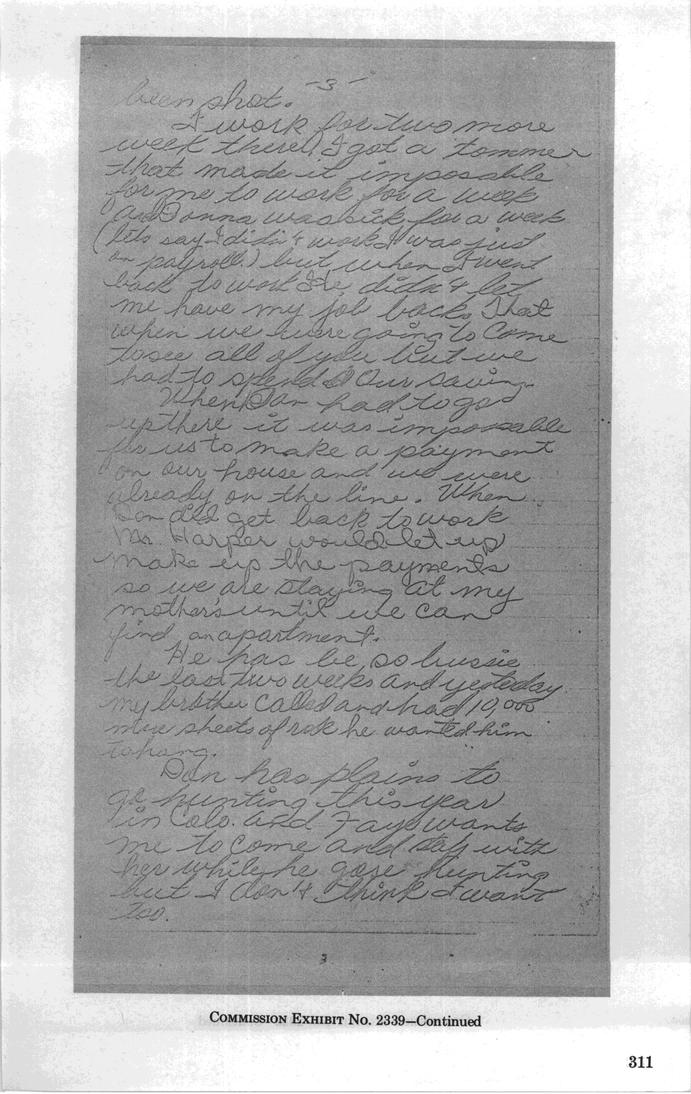 -3-
been shot.
I work for two more
week there! I got a tommer
that made it imposable
for me to work for a week
and Donna was sick for a week
(lets say I didn't work I was just
on payroll.) but when I went
back to work He didn't let
me have my job back. That
when we were going to come
to see all of you but we
had to spend Our saving
When Dan had to go
up there it was imposable
for us to make a payment
on our house and we were
already on the line. When
Dan did get back to work
Mr. Harper would let up
make up the payments
so we are staying at my
mother's until we can
find an apartment.
He has be so bussie
the last two weeks and yesteday
my brother called and had 10,000
more sheets of rok he wanted him
to hang.
Dan has plains to
go hunting this year
in Colo. and Fay wants
me to come and stay with
her while he gose Hunting
but I don't think I want
too.
3
COMMISSION EXHIBIT No. 2339—Continued
311